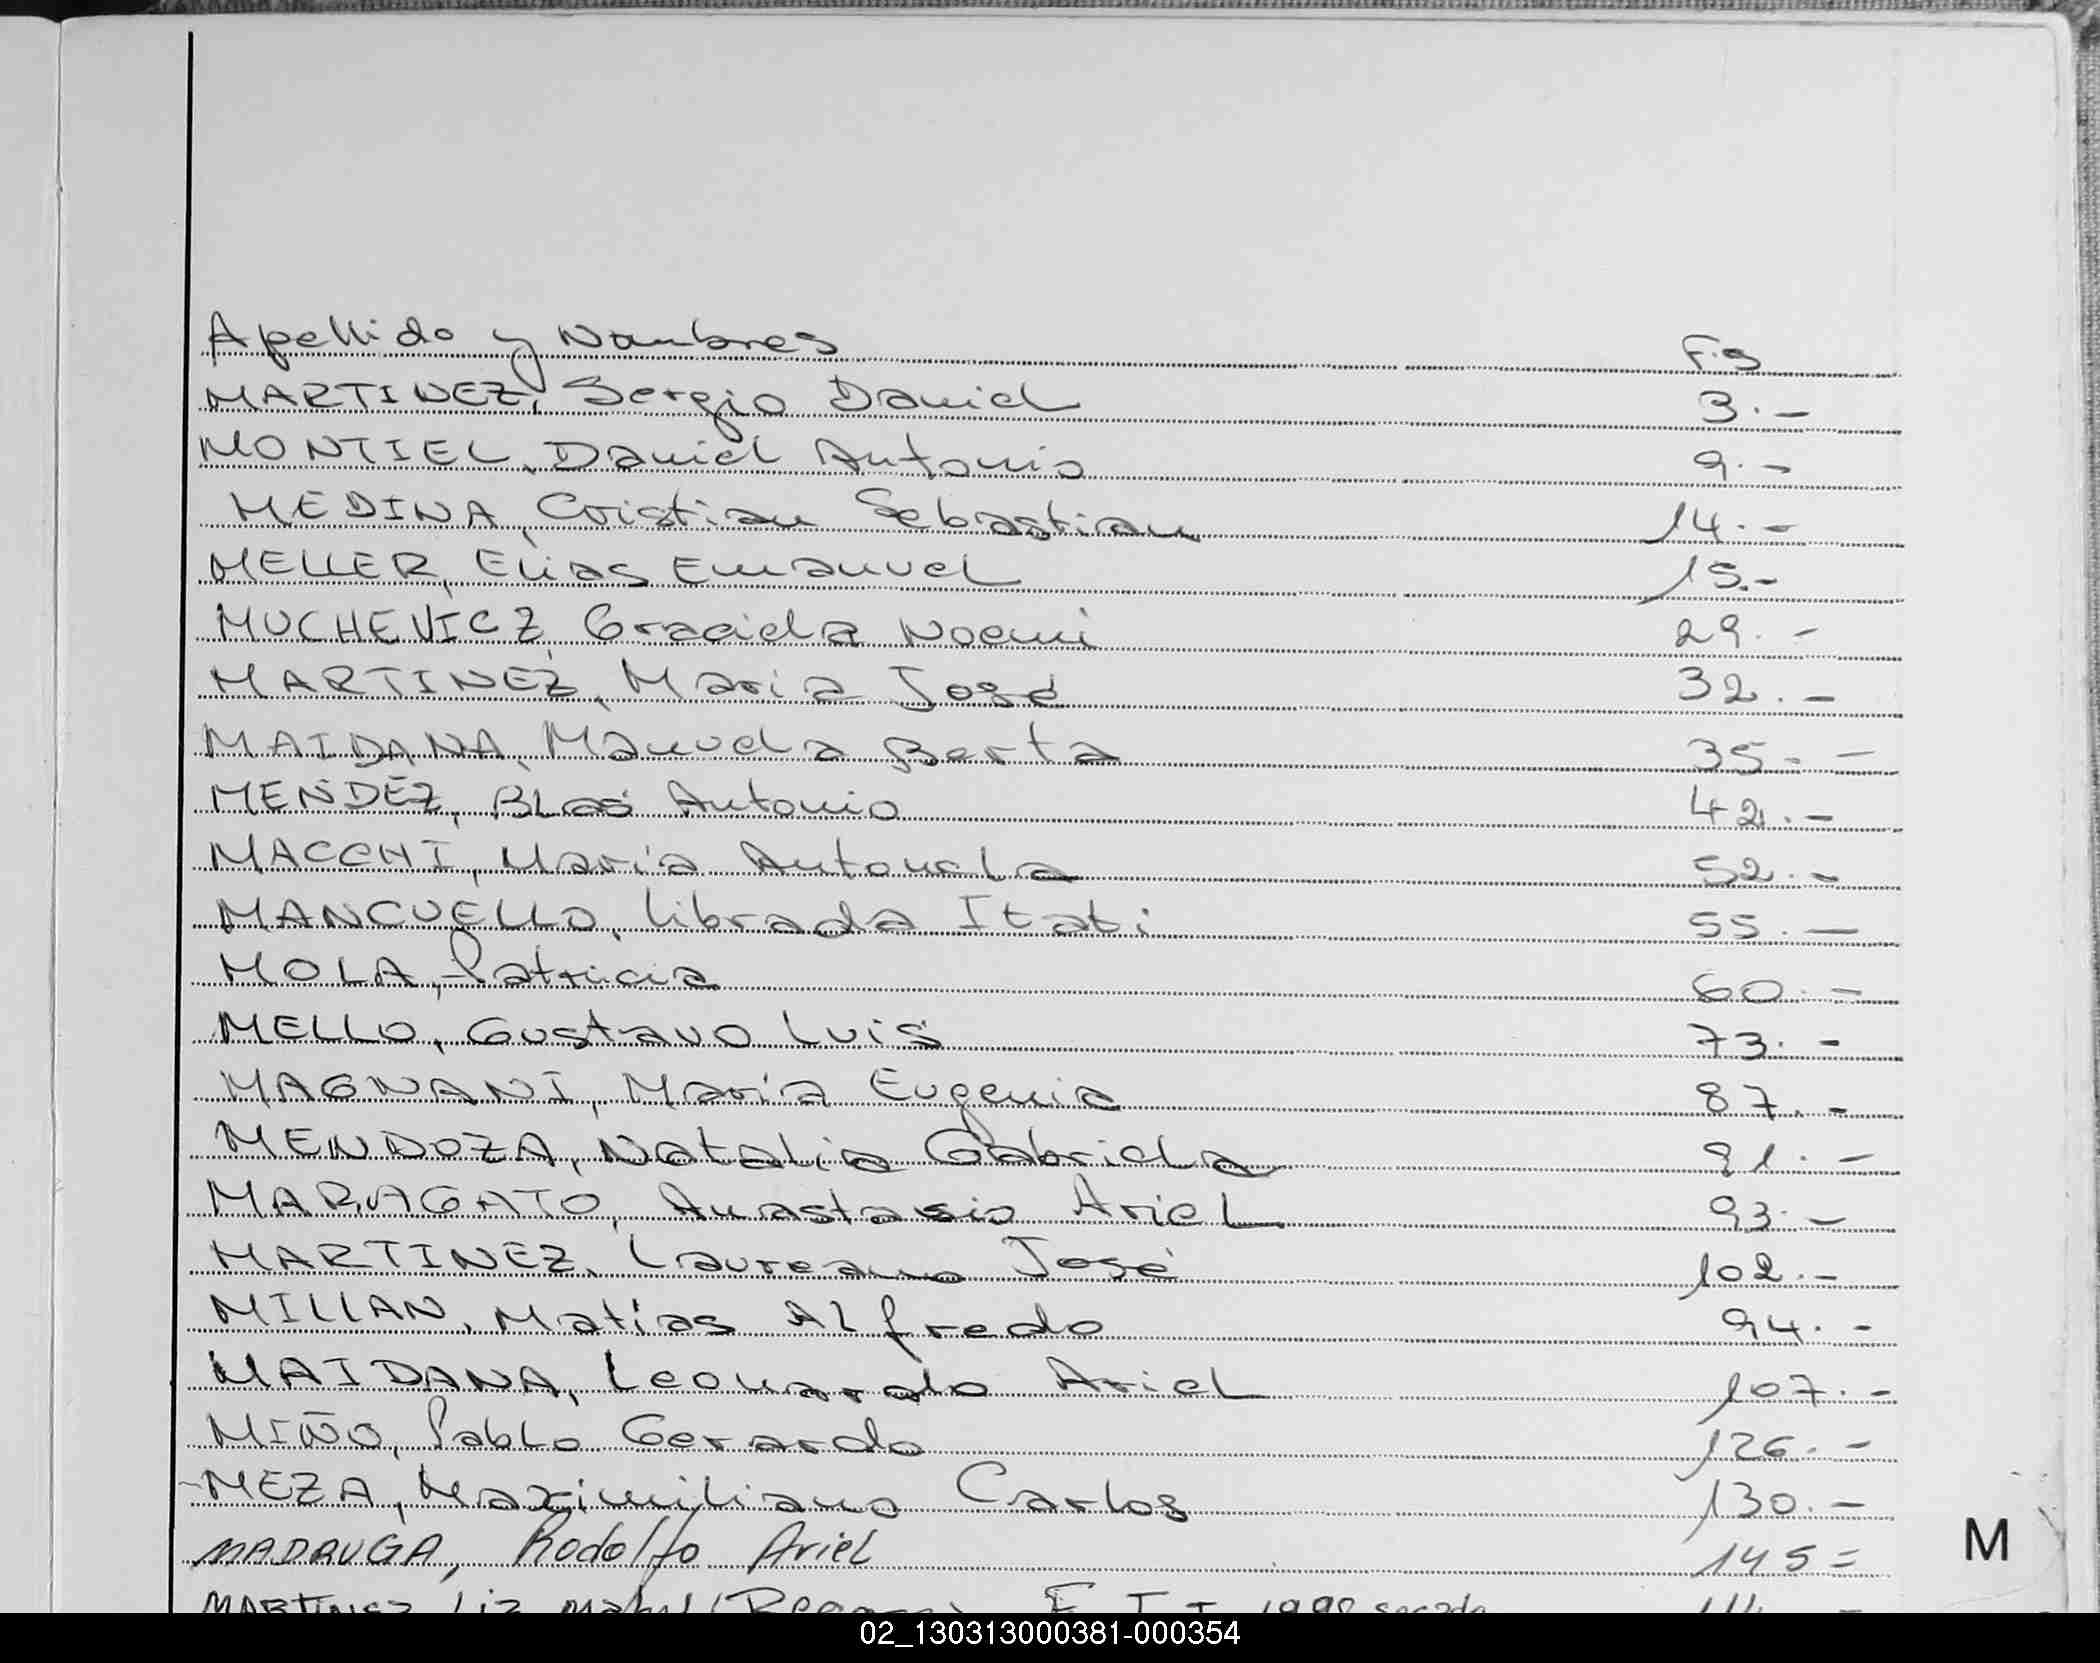 Apellido y Nombres F.s
MARTINEZ, Sergio Daniel 3.-
MONTIEL, Daniel Antonio 9.-
MEDINA, Cristian Sebastian 14.-
MELLER, Elias Emanuel 15.-
MUCHEVICZ, Graciela Noemi 29.-
MARTINEZ, Maria José 32.-
MAIDANA, Manuela Berta 35.-
MENDEZ, Blas Antonio 42.-
MACCHI, Maria Antonela 52.-
MANCUELLO, Librada Itati 55.-
MOLA, Patricia 60.-
MELLO, Gustavo Luis 73.-
MAGNANI, María Eugenia 87.-
MENDOZA, Natalia Gabriela 91.-
MARAGATO, Anastasio Ariel 93.-
MARTINEZ, Laureano José 102.-
MILLAN, Matias Alfredo 94.-
MAIDANA, Leonardo Ariel 107.-
MIÑO, Pablo Gerardo 126.-
MEZA, Maximiliano Carlos 130.-
MADRUGA, Rodolfo Ariel 145=
MARTINEZ Liz
M
02_130313000381-000354